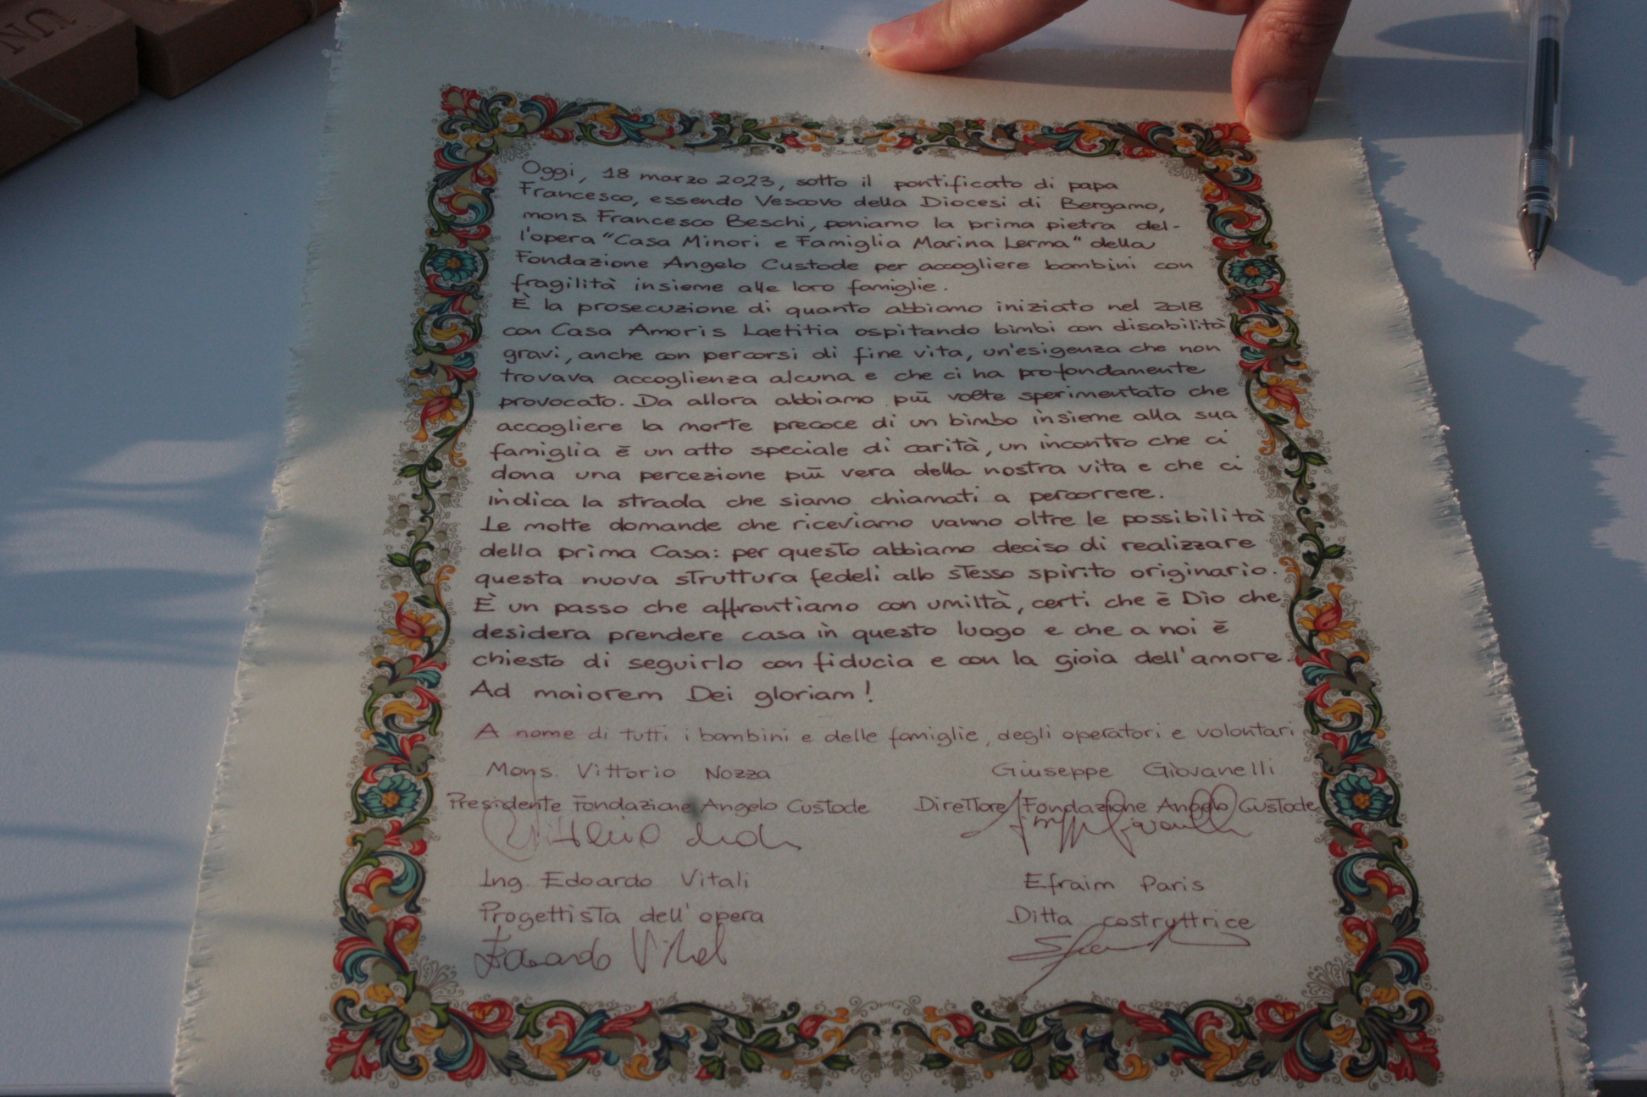 UN
Oggi, 18 marzo 2023, sotto il pontificato di papa
Francesco, essendo Vescovo della Diocesi di Bergamo,
mons. Francesco Beschi, poniamo la prima pietra del-
l'opera "Casa Minori e Famiglia Marina Lerma" della
Fondazione Angelo Custode per accogliere bambini con
fragilità insieme alle loro famiglie.
È la prosecuzione di quanto abbiamo iniziato nel 2018
con Casa Amoris Laetitia ospitando bimbi con disabilità
gravi, anche con percorsi di fine vita, un'esigenza che non
trovava accoglienza alcuna e che ci ha profondamente
provocato. Da allora abbiamo più volte sperimentato che
accogliere la morte precoce di un bimbo insieme alla sua
famiglia è un atto speciale di carità, un incontro che ci
dona una percezione più vera della nostra vita e che ci
indica la strada che siamo chiamati a percorrere.
Le molte domande che riceviamo vanno oltre le possibilità
della prima Casa: per questo abbiamo deciso di realizzare
questa nuova struttura fedeli allo stesso spirito originario.
È un passo che affrontiamo con umiltà, certi che è Dio che
desidera prendere casa in questo luogo e che a noi è
chiesto di seguirlo con fiducia e con la gioia dell'amore.
Ad maiorem Dei gloriam!
A nome di tutti i bambini e delle famiglie, degli operatori e volontari
Mons. Vittorio Nozza Giuseppe Giovanelli
Presidente Fondazione Angelo Custode Direttore Fondazione Angelo Custode
Ing. Edoardo Vitali Efraim Paris
Progettista dell'opera Ditta costruttrice
Edoardo Vitali